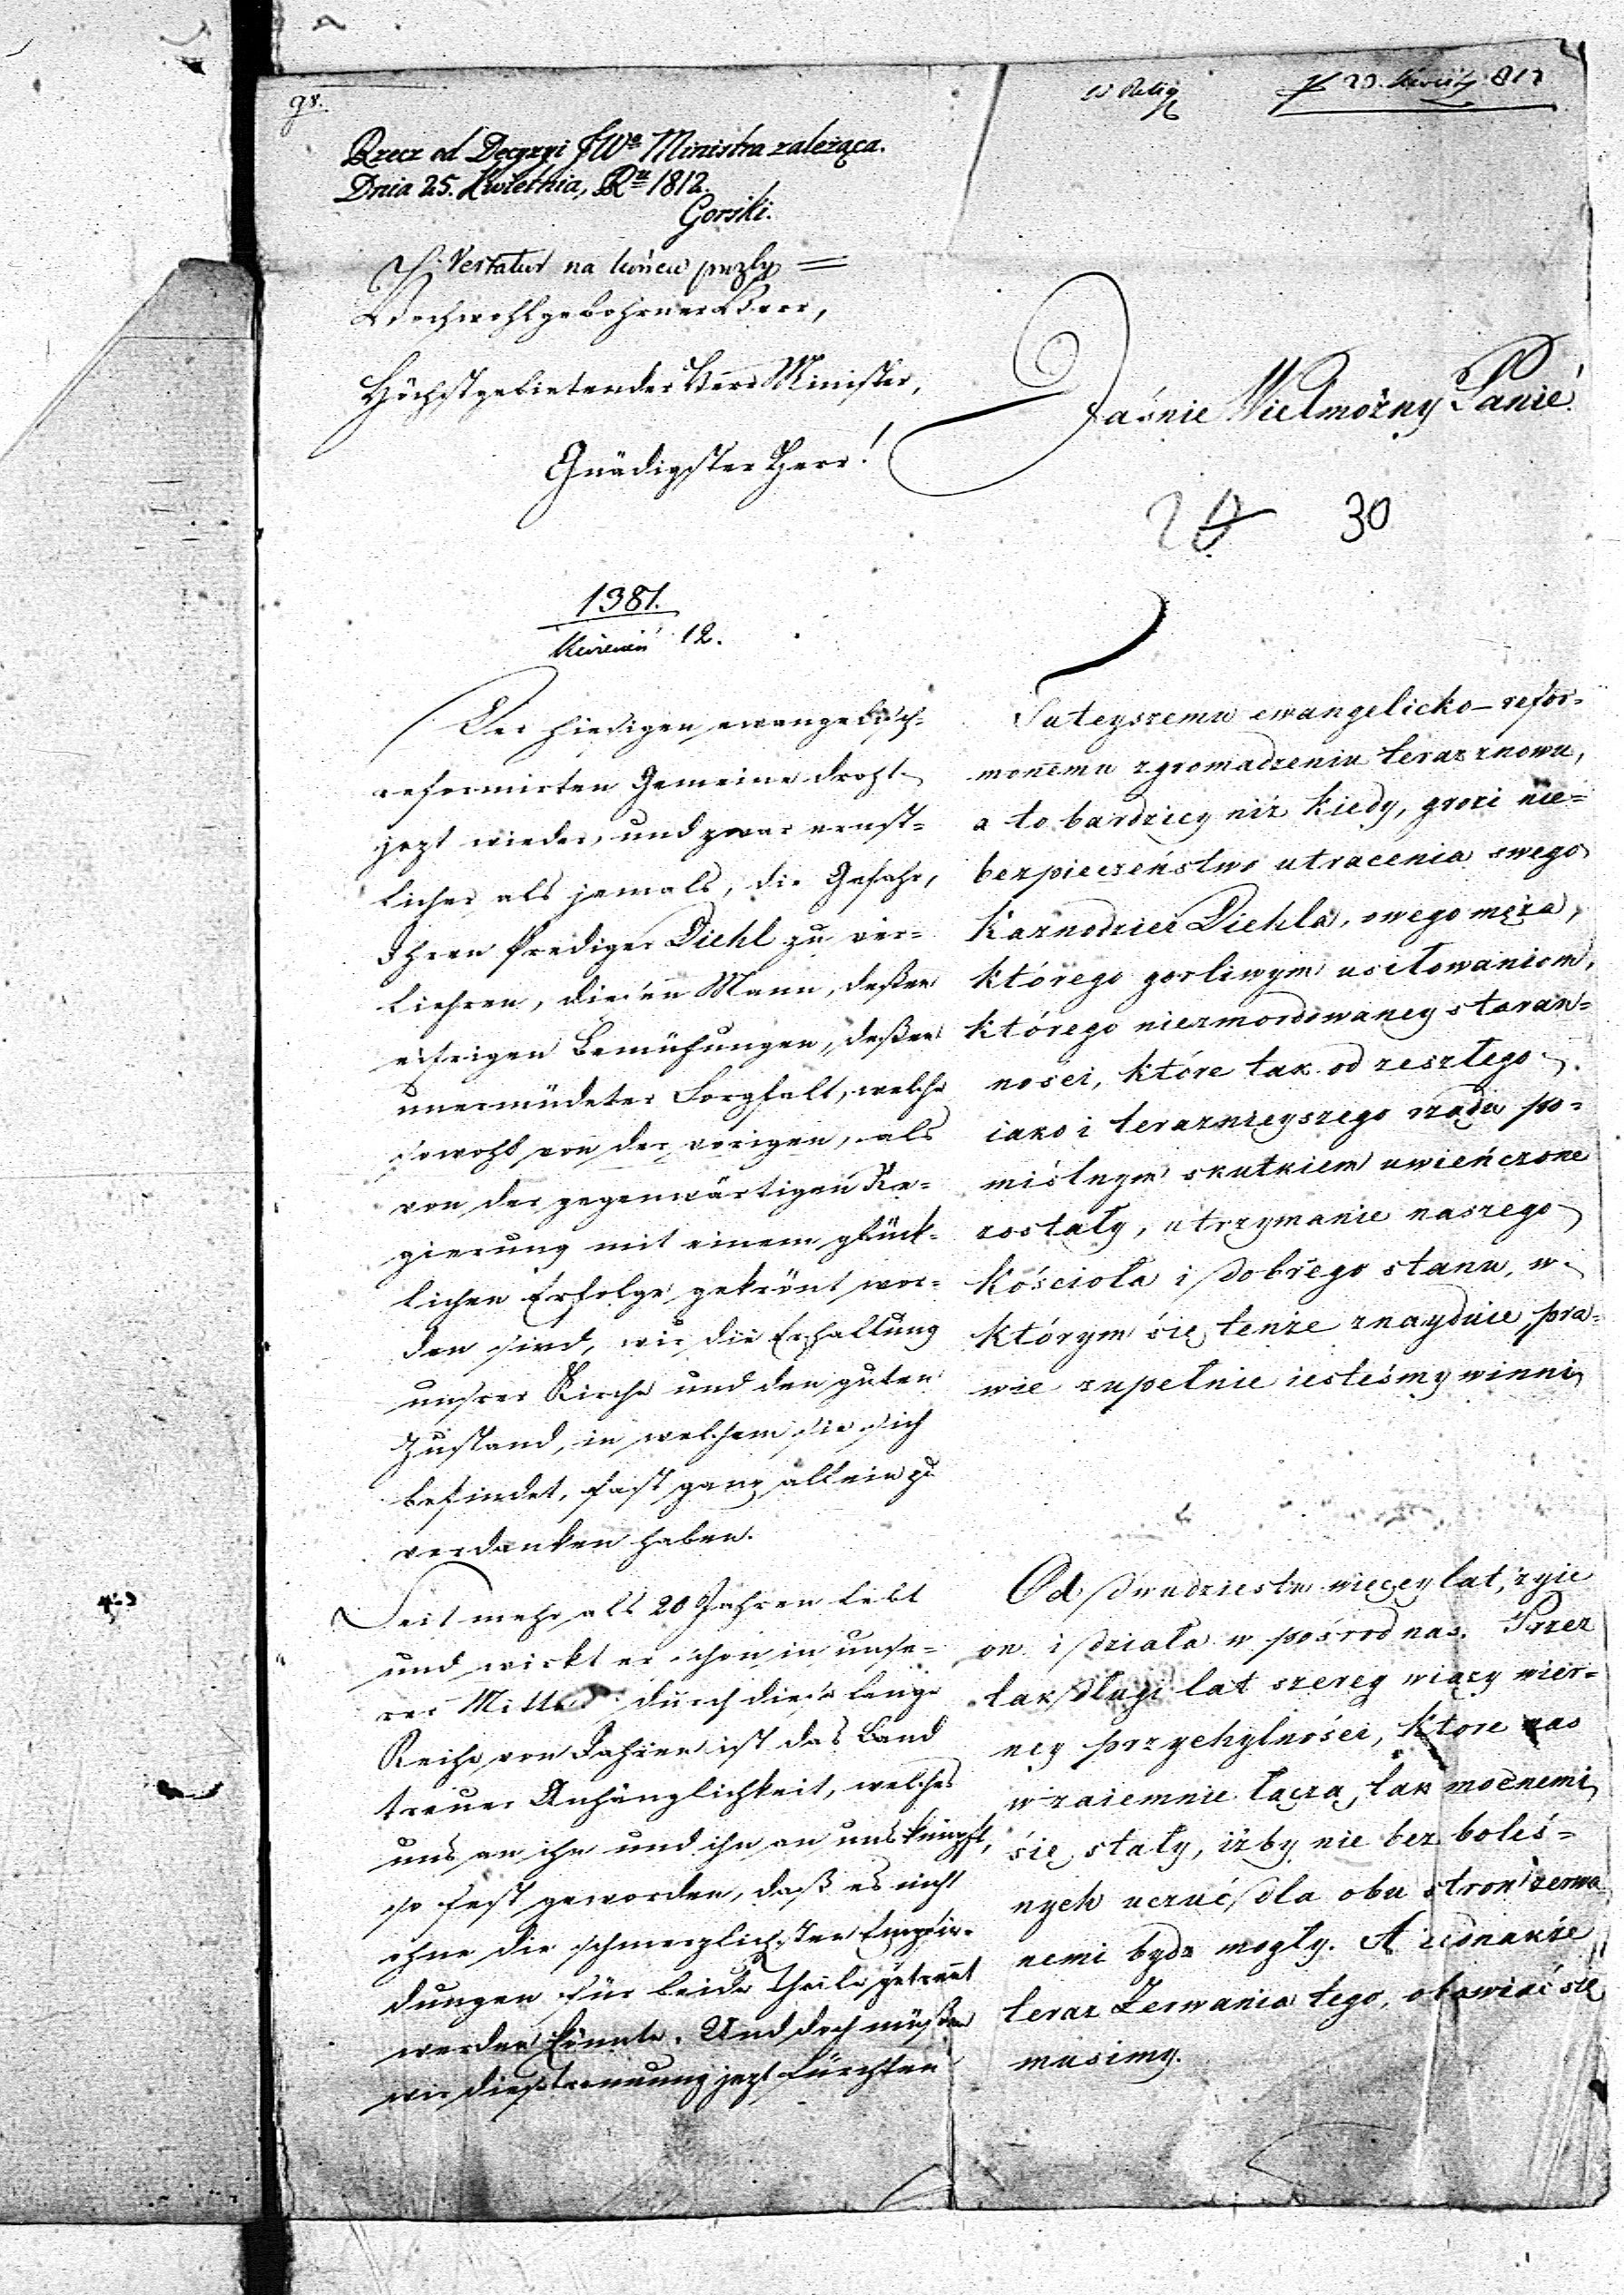 98.
W Relig
23. Kwietn 812
Rzecz od Decyzyi JWo Ministra zależąca.
Dnia 25. Kwietnia, Ru 1812.
Gorski.
Vertatur na końcu
Hochwohlgebohrner Herr,
Höchstgebietender Herr Minister,
Gnädigster Herr!
1381.
Kwiecień 12.
Der hiesigen evangelisch-
reformirten Gemeine droht
jezt wieder, und zwar ernst-
licher als jemals, die Gefahr,
Ihren Prediger Diehl zu ver-
liehren, diesen Mann, deßen
eifrigen Bemühungen, deßen
unermüdeter Sorgfalt, welche
sowohl von der vorigen, als
von der gegenwärtigen Re-
gierung mit einem glück-
lichen Erfolge gekrönt wor-
den sind, wir die Erhaltung
unsrer Kirche und den guten
Zustand, in welchem sie sich
befindet, fast ganz allein zu
verdanken haben.
Seit mehr als 20 Jahren lebt
und wirkt er schon in unse-
rer Mitte. Durch diese lange
Reihe von Jahren ist das Band
treuer Anhänglichkeit, welches
uns an ihn und ihn an uns knüpft,
so fest geworden, daß es nicht
ohne die schmerzlichsten Empfin-
dungen für beide Theile getrennt
werden könnte. Und doch müßen
wir diese Trennung jezt fürchten
Jaśnie Wielmożny Panie!
30
Tuteyszemu ewangelicko-refor-
monemu zgromadzeniu teraz znowu,
a to bardziey niż kiedy, grozi nie=
bezpieczeństwo utracenia swego
Kaznodziei Diehla, owego męża,
którego gorliwym usiłowaniom,
którego niezmordowaney staran=
ności, które tak od zeszłego
iako i teraznieyszego rządu po=
miślnym skutkiem uwieńczone
zostały, utrzymanie naszego
Kościoła i dobrego stanu, w
którym się tenże znayduie pra=
wie zupełnie iesteśmy winni
Od dwudziestu więcey lat, żyie
on i działa w pośrod nas. Przez
tak długi lat szereg więzy wier=
ney przychylności, ktore nas
wzaiemnie łączą, tak mocnemi
się stały, iżby nie bez boleś=
nych uczuć dla obu stron zerwa
nemi bydz mogły. A iednakże
teraz Zerwania tego, obawiać się
musimy.